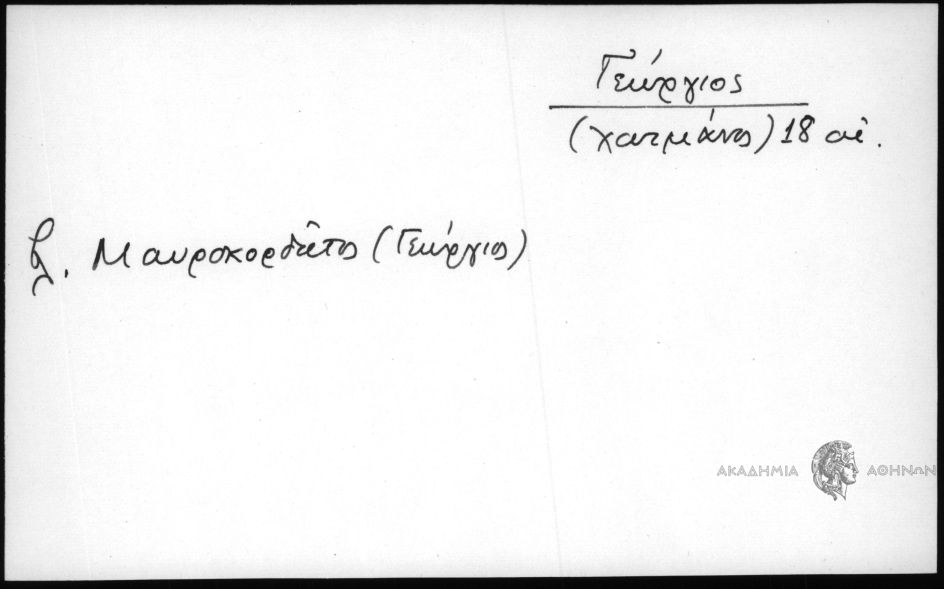 Γεώργιος
(χατμάνος) 18 αἰ.
βλ. Μαυροκορδᾶτος (Γεώργιος)
ΑΚΑΔΗΜΙΑ ΑΘΗΝΩΝ